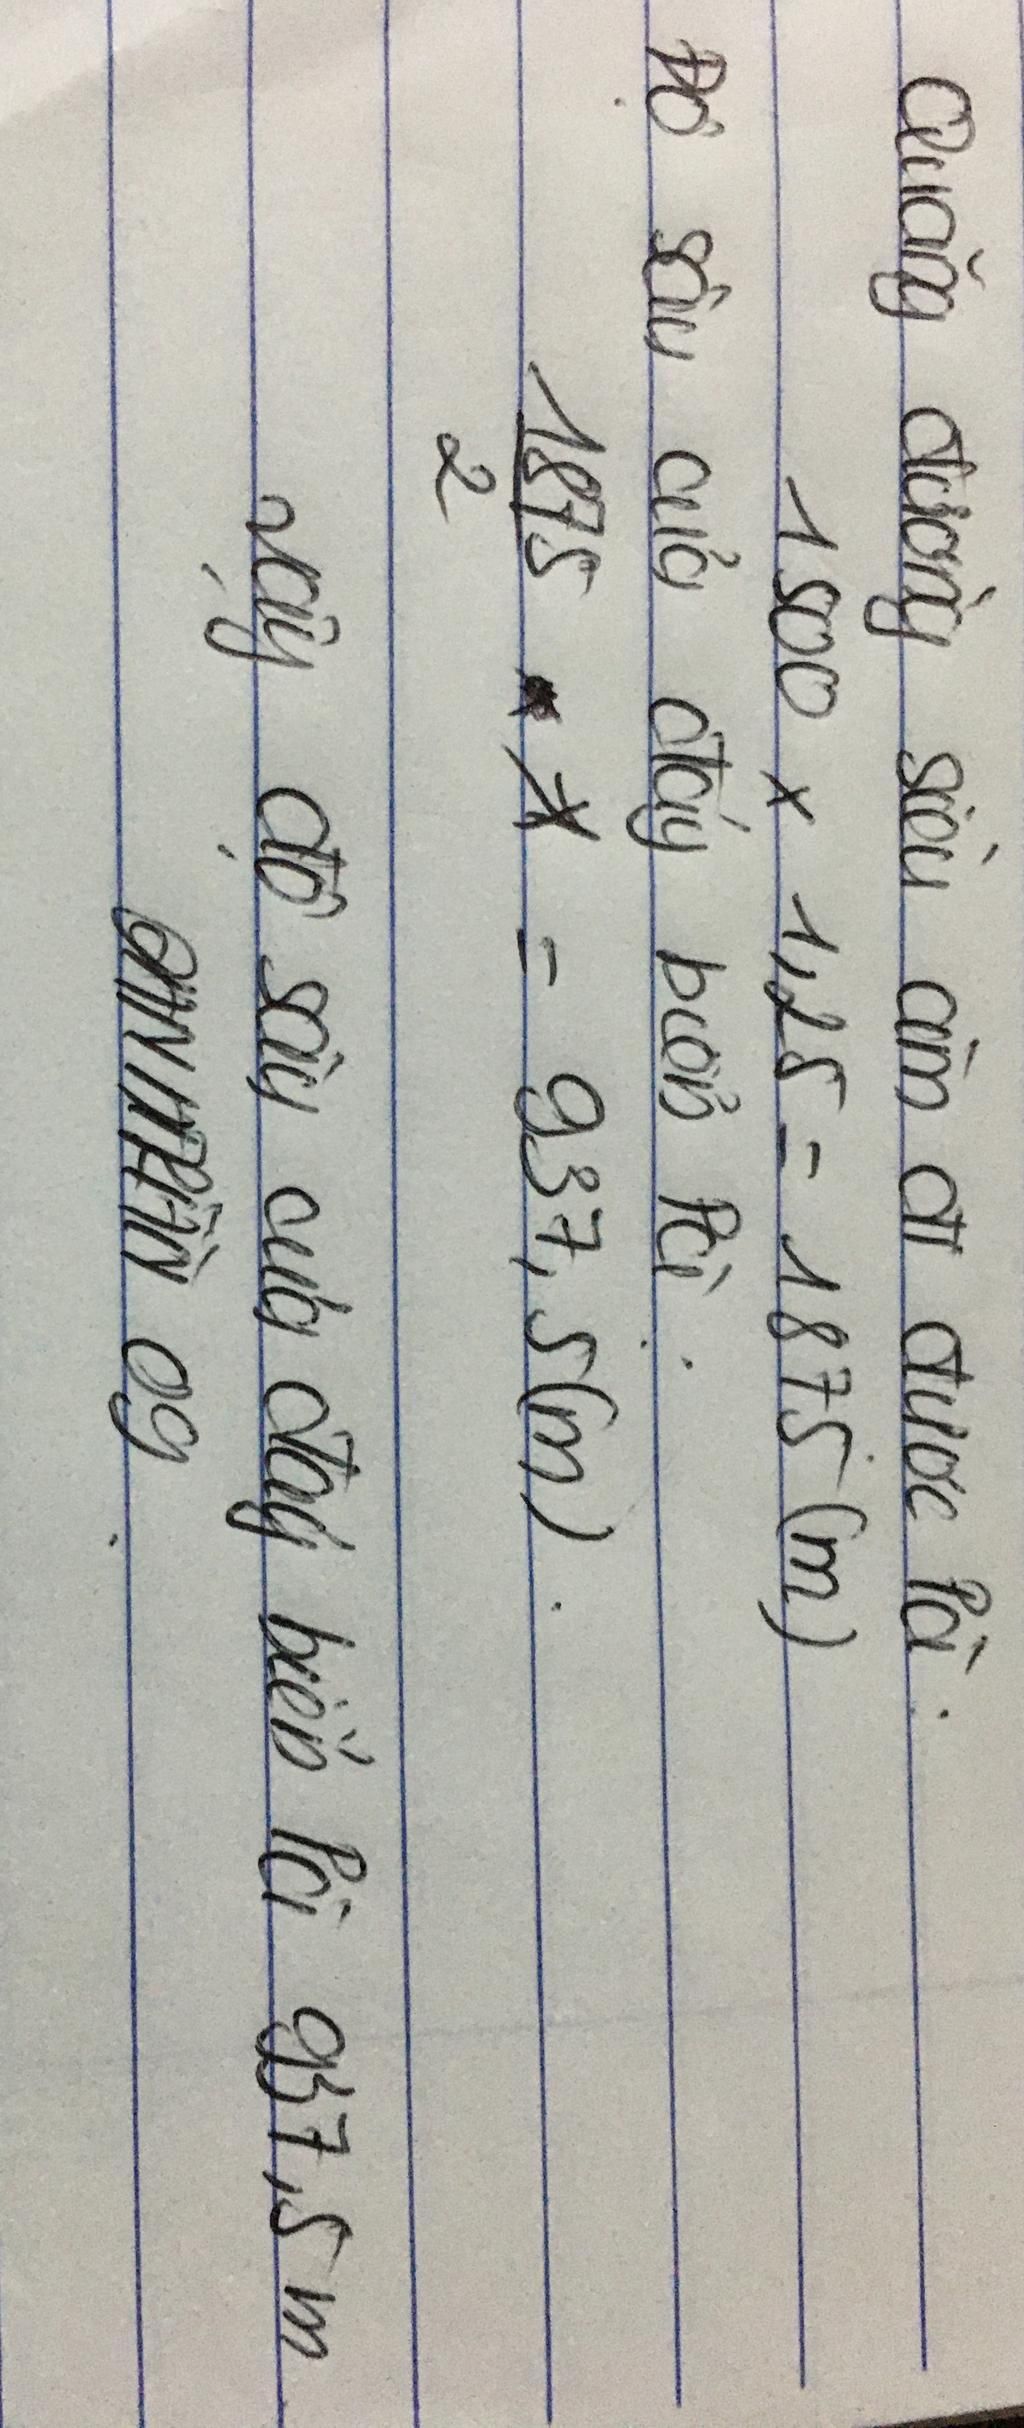 Quãng đường siêu âm đi được là:
1500 x 1,25 = 1875 (m)
Độ sâu của đáy biển là:
1875 = 937,5 (m).
2
Vậy độ sâu của đáy biển là 937,5 m
09